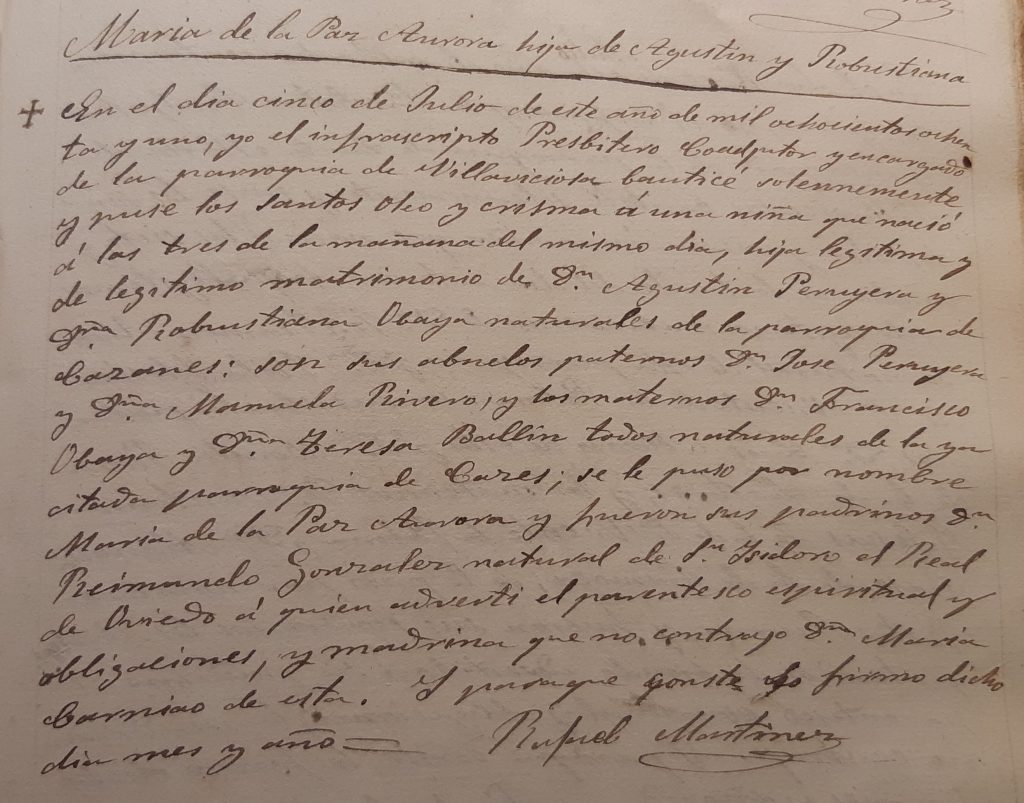 Maria de la Paz Aurora hija de Agustin y Robustiana
En el dia cinco de Julio de este año de mil ochocientos ochen
ta y uno, yo el infrascripto Presbitero Coadjutor y encargado
de la parroquia de Villaviciosa bauticé solennemente
y puse los santos oleo y crisma á una niña que nació
á las tres de la mañana del mismo dia, hija legitima y
de legitimo matrimonio de Dn. Agustin Peruyera y
Dña Robustiana Obaya naturales de la parroquia de
Cazanes: son sus abuelos paternos Dn. Jose Peruyera
y Dña Manuela Rivero, y los maternos Dn. Francisco
Obaya y Dña Teresa Ballin todos naturales de la ya
citada parroquia de Cazes; se le puso por nombre
Maria de la Paz Aurora y fueron sus padrinos Dn
Reimundo Gonzalez natural de Sn. Isidoro el Real
de Oviedo á quien adverti el parentesco espiritual y
obligaciones, y madrina que no contrajo Dña Maria
Carniao de esta. Y para que conste lo firmo dicho
dia mes y año
Rafael Martinez